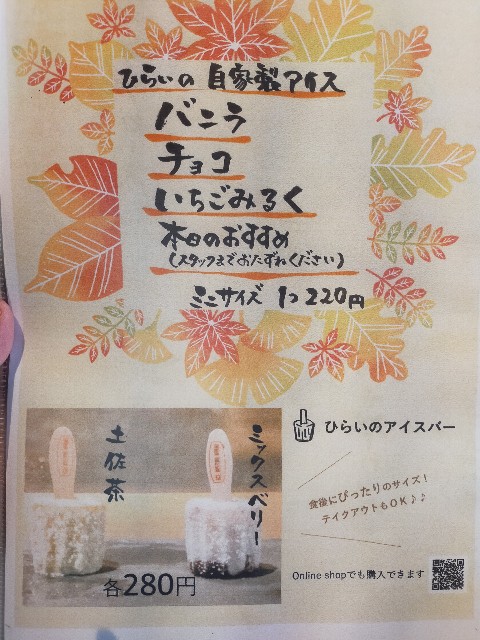 ひらいの 自家製アイス
バニラ
チョコ
いちごみるく
本日のおすすめ
(スタッフまでおたずねください)
ミニサイズ 1つ 220円
土佐茶
ミックスベリー
各280円
ひらいのアイスバー
食後にぴったりのサイズ!
テイクアウトもOK♪♪
Online shopでも購入できます